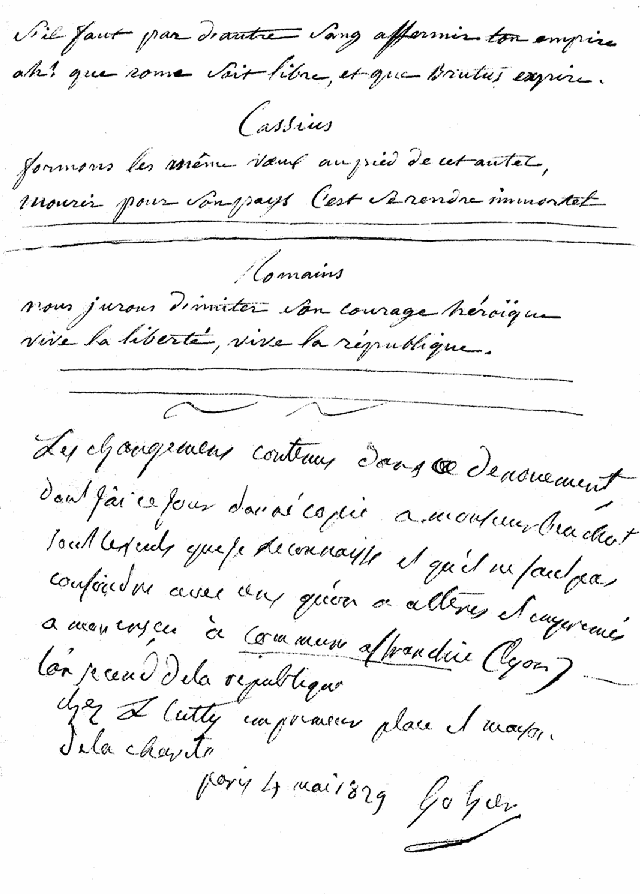 S'il faut par d'autre sang affermir ton empire
ah! que rome soit libre, et que Brutus expire.
Cassius
formons les même vœux au pied de cet autel,
mourir pour son pays c'est se rendre immortel
Romains
nous jurons d'imiter son courage héroïque
vive la liberté, vive la république.
Les changemens contenus dans ce denouement,
dont j'ai ce jour donné copie a monsieur
sont les seuls que je reconnaisse et qu'il ne faut pas
confondre avec ceux qu'on a altérés et imprimés
a mon insçu à commune affranchie (Lyon)
l'an second de la république
chez L Cutty imprimeur place et maison
de la charité
paris 4 mai 1829 Gohier